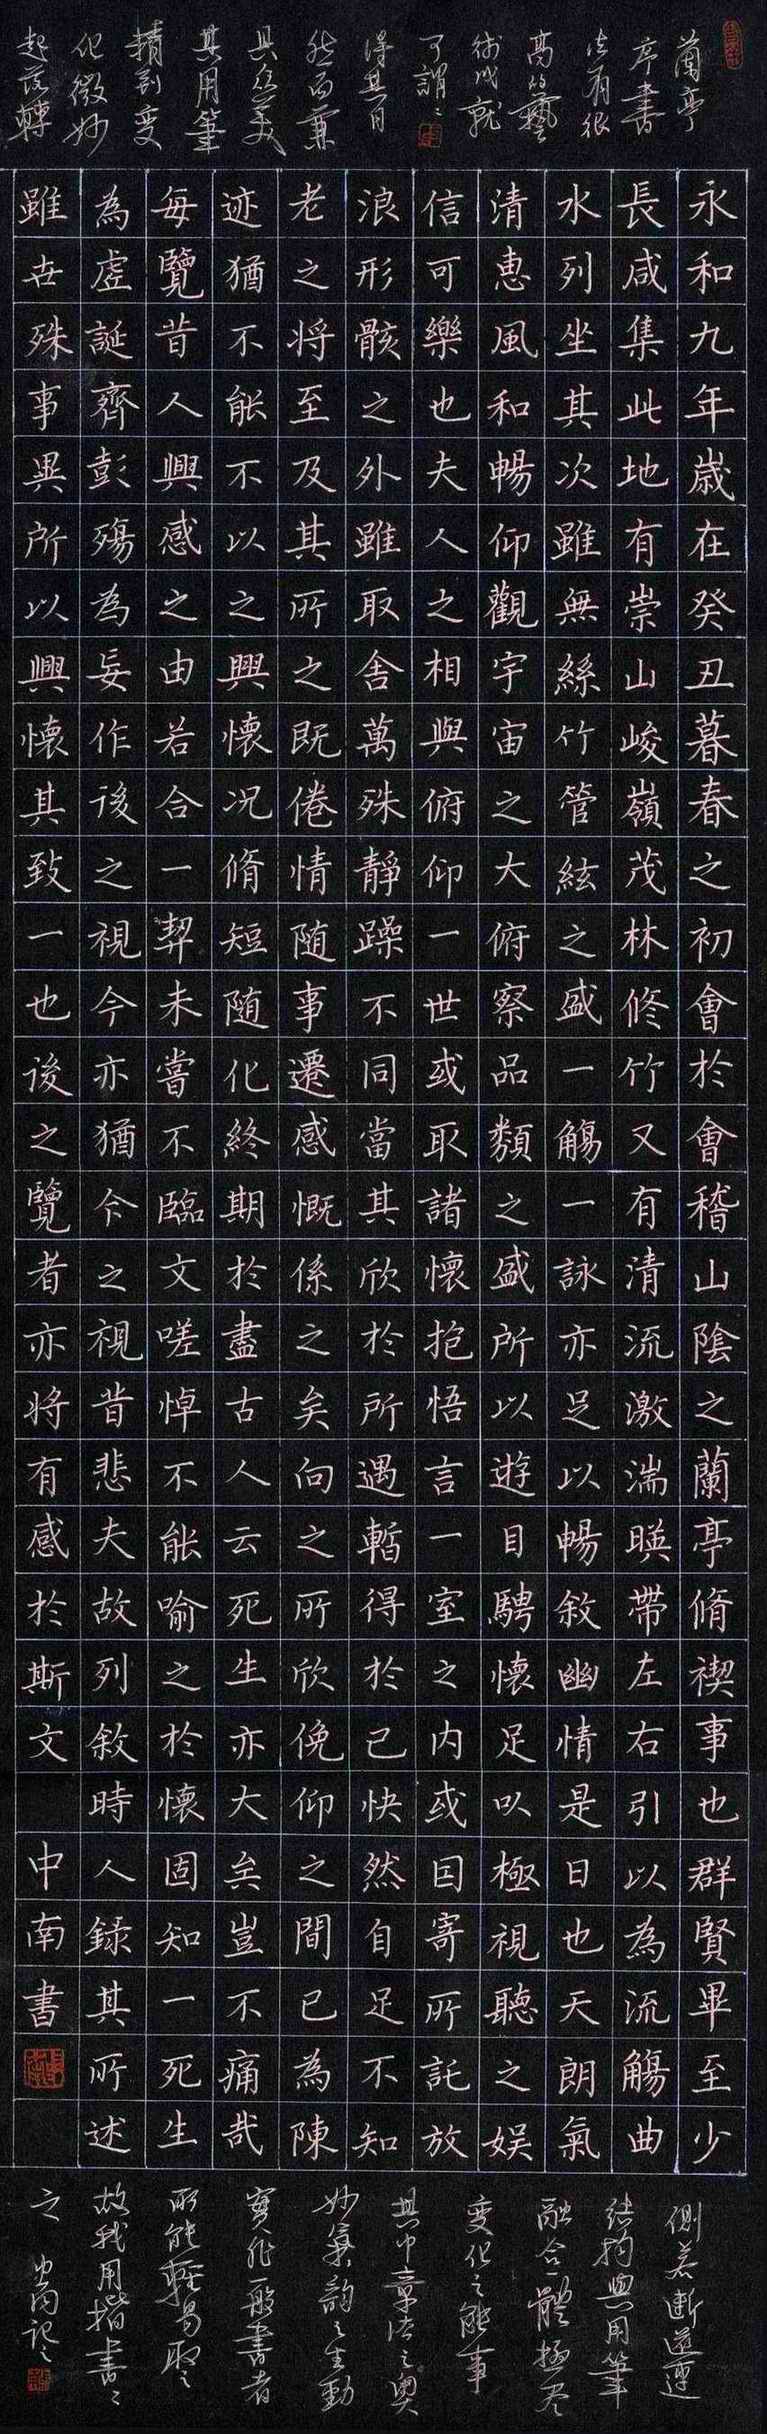 蘭亭
序書
法有很
高的藝
術成就
可謂〻
得其一月
然而兼
具众美
其用筆
精到变
化微妙
起落轉
永和九年歲在癸丑暮春之初會於會稽山陰之蘭亭脩禊事也群賢畢至少
長咸集此地有崇山峻嶺茂林修竹又有清流激湍暎帶左右引以為流觴曲
水列坐其次雖無絲竹管絃之盛一觴一詠亦足以暢敘幽情是日也天朗氣
清惠風和暢仰觀宇宙之大俯察品類之盛所以遊目騁懷足以極視聽之娱
信可樂也夫人之相與俯仰一世或取諸懷抱悟言一室之内或因寄所託放
浪形骸之外雖取舍萬殊靜躁不同當其欣於所遇暫得於己快然自足不知
老之将至及其所之既倦情随事遷感慨係之矣向之所欣俛仰之間已為陳
迹猶不能不以之興懷况脩短随化終期於盡古人云死生亦大矣豈不痛哉
每覽昔人興感之由若合一契未嘗不臨文嗟悼不能喻之於懷固知一死生
為虚誕齊彭殤為妄作後之視今亦猶今之視昔悲夫故列敘時人録其所述
雖世殊事異所以興懷其致一也後之覽者亦将有感於斯文
中南書
側若断還連
结构與用筆
融合一體極尽
变化之能事
其中章法之奥
妙氣韵之生動
實非一般書者
所能輕易取〻
故我用楷書〻
之 中南記〻